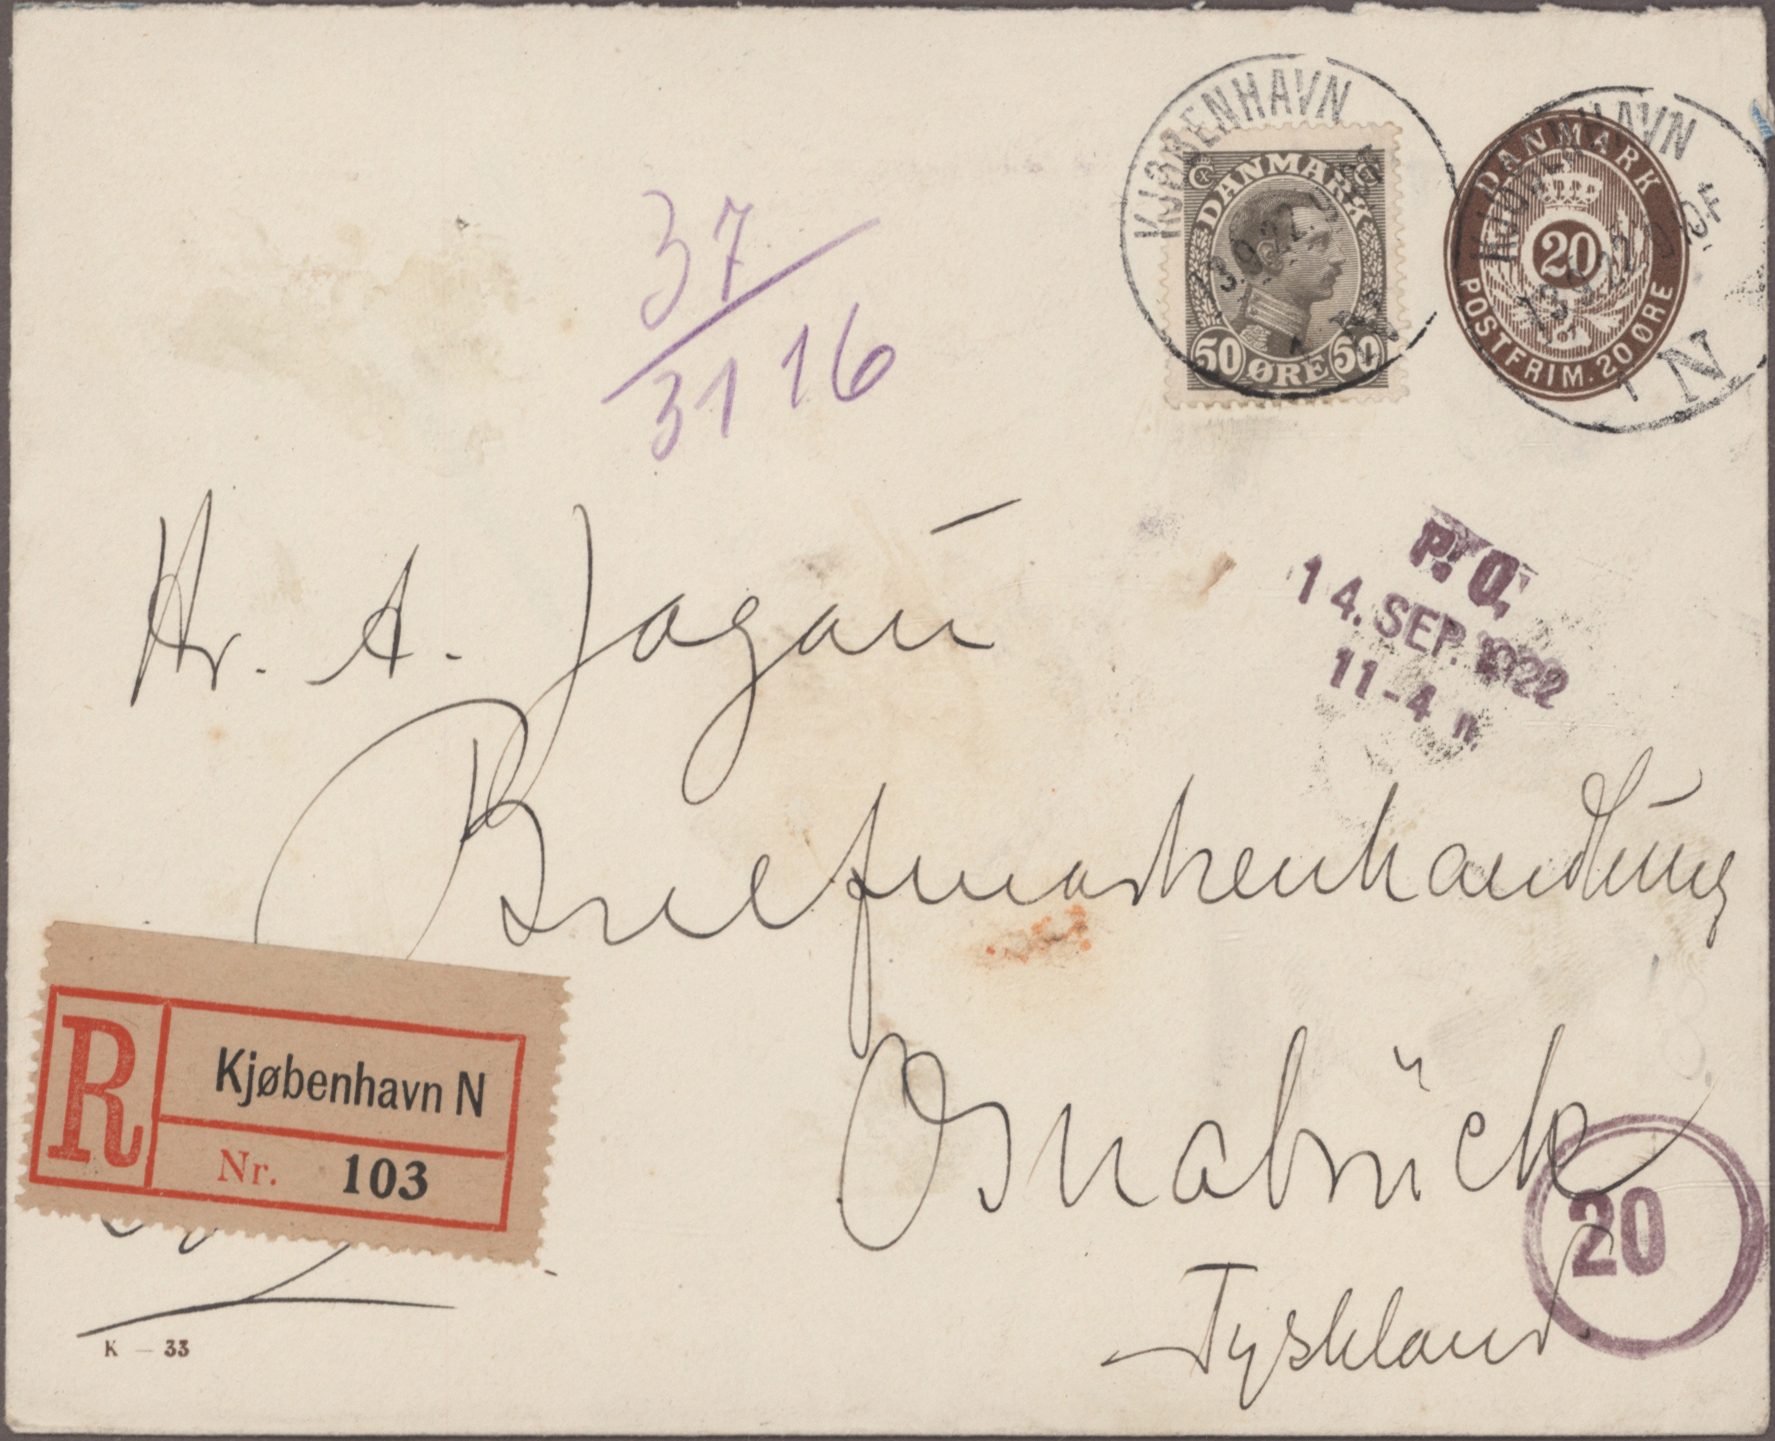 KJØBENHAVN
13.9.22.
N
DANMARK
50 ØRE 50
KJØBENHAVN
13.9.22
N
DANMARK
20
POSTFRIM. 20 ØRE
37
31 16
P. O.
14. SEP. 1922
11-4 n.
Hr. A. Jagau
Briefmarkenhandlung
Osnabrück
Tyskland.
R
Kjøbenhavn N
Nr. 103
20
K - 33